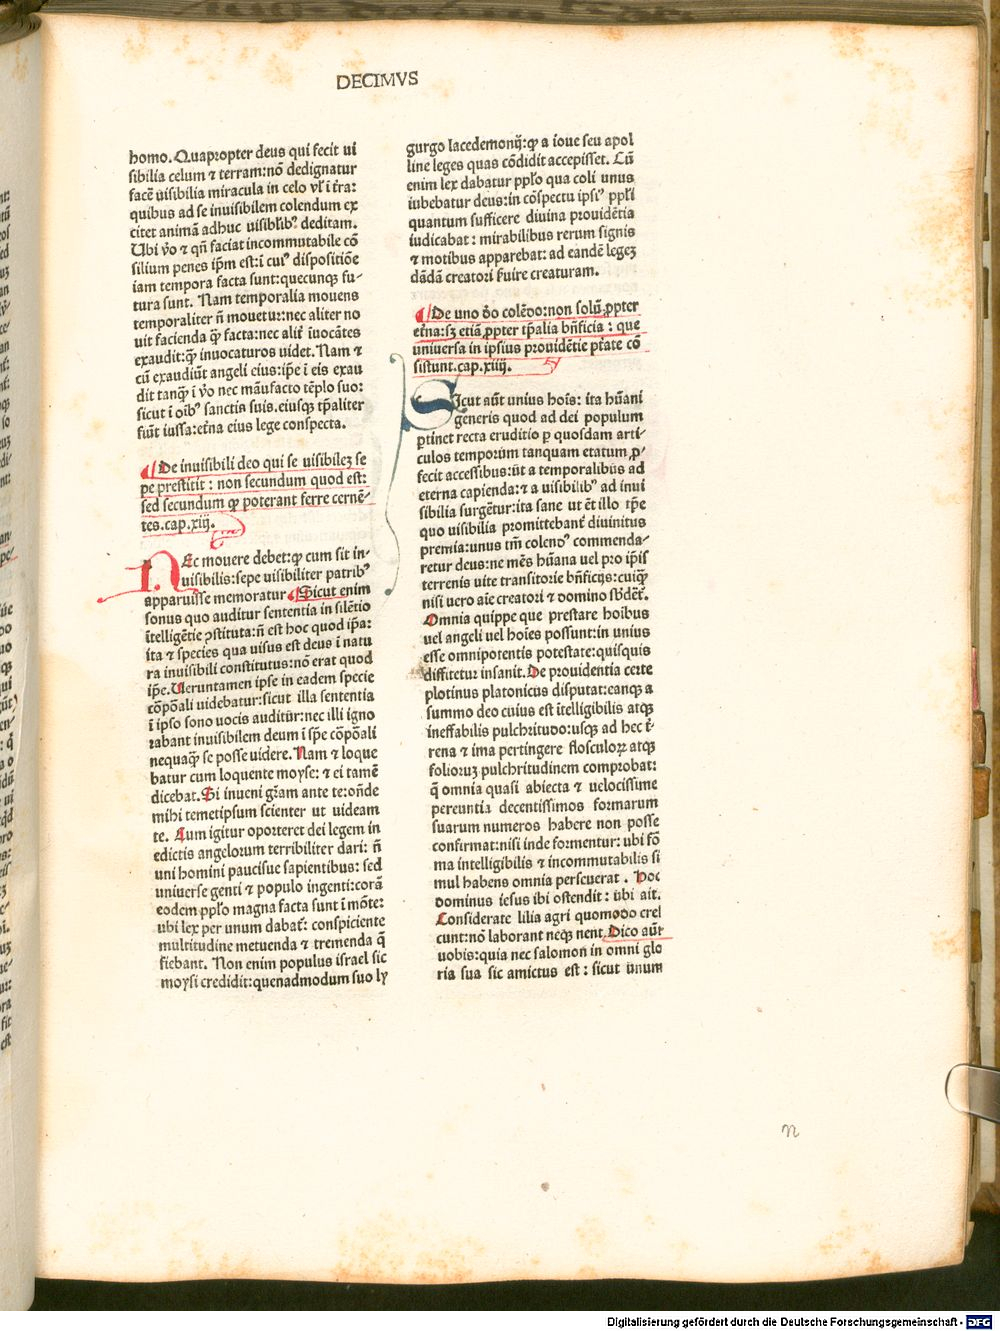 DECIMVS
homo. Quapropter deus qui fecit ui
sibilia celum ⁊ terram: nō dedignatur
facē uisibilia miracula in celo vl̓ ī t̓ra:
quibus ad se inuisibilem colendum ex
citet animā adhuc uisibl̓ibꝰ deditam.
Ubi v̓o ⁊ qn̄ faciat incommutabile cō
silium penes ip̄m est: ī cuiꝰ dispositiōe
iam tempora facta sunt: quecunqꝫ fu-
tura sunt. Nam temporalia mouens
temporaliter n̄ mouetur: nec aliter no
uit facienda qͣ̄ facta: nec alit̓ īuocātes
exaudit: qͣ̄ inuocaturos uidet. Nam ⁊
cū exaudiūt angeli eius: ip̄e ī eis exau
dit tanqͣ̄ ī v̓o nec māufacto tēplo suo:
sicut ī oībꝰ sanctis suis. eiusqꝫ tp̄aliter
fiūt iussa: et̓na eius lege conspecta.
De inuisibili deo qui se uisibileꝫ se
pe prestitit: non secundum quod est:
sed secundum ꝙ poterant ferre cernē-
tes. cap. xiij.
NEc mouere debet: ꝙ cum sit in-
uisibilis: sepe uisibiliter patribꝰ
apparuisse memoratur. Sicut enim
sonus quo auditur sententia in silētio
ītelligētie ꝯstituta: n̄ est hoc quod ip̄a:
ita ⁊ species qua uisus est deus ī natu
ra inuisibili constitutus: nō erat quod
ip̄e. Ueruntamen ipse in eadem specie
cōpōali uidebatur: sicut illa sententia
ī ipso sono uocis auditūr: nec illi igno
rabant inuisibilem deum ī sp̄e cōpōali
nequaqͣ̄ se posse uidere. Nam ⁊ loque
batur cum loquente moyse: ⁊ ei tamē
dicebat. Si inueni gr̄am ante te: on̄de
mihi temetipsum scienter ut uideam
te. Cum igitur oporteret dei legem in
edictis angelorum terribiliter dari: n̄
uni homini paucisue sapientibus: sed
uniuerse genti ⁊ populo ingenti: corā
eodem pp̄lo magna facta sunt ī mōte:
ubi lex per unum dabat̓: conspiciente
multitudine metuenda ⁊ tremenda q̄
fiebant. Non enim populus israel sic
moysi credidit: quenadmodum suo ly
gurgo lacedemonij: ꝙ a ioue seu apol
line leges quas cōdidit accepisset. Cū
enim lex dabatur pp̄lo qua coli unus
iubebatur deus: in cōspectu ipsiꝰ pp̄li
quantum sufficere diuina prouidētia
iudicabat: mirabilibus rerum signis
⁊ motibus apparebat: ad eandē legeꝫ
dādā creatori s̓uire creaturam.
De uno deo colēdo: non solū ꝓpter
et̓na: sꝫ etiā ꝓpter tp̄alia bn̄ficia: que
uniuersa in ipsius prouidētie ptāte cō
sistunt. cap. xiiij.
SIcut aūt unius hoīs: ita hūani
generis quod ad dei populum
ꝑtinet recta eruditio ꝑ quosdam arti-
culos temporum tanquam etatum ꝓ-
fecit accessibus: ūt a temporalibus ad
eterna capienda: ⁊ a uisibilibꝰ ad inui
sibilia surgētur: ita sane ut ēt illo tp̄e
quo uisibilia promittebant̓ diuinitus
premia: unus tm̄ colendꝰ commenda-
retur deus: ne mēs hūana uel pro ip̄is
terrenis uite transitorie bn̄ficijs: cuiqͣ̄
nisi uero aīe creatori ⁊ domino sbdēt̓.
Omnia quippe que prestare hoībus
uel angeli uel hoīes possunt: in unius
esse omnipotentis potestate: quisquis
diffitetur insanit. De prouidentia certe
plotinus platonicus disputat: eanqꝫ a
summo deo cuius est ītelligibilis atqꝫ
ineffabilis pulchritudo: usqꝫ ad hec t̓-
rena ⁊ ima pertingere flosculoꝝ atqꝫ
folioruꝫ pulchritudinem comprobat:
q̄ omnia quasi abiecta ⁊ uelocissime
pereuntia decentissimos formarum
suarum numeros habere non posse
confirmat: nisi inde formentur: ubi fō
ma intelligibilis ⁊ incommutabilis si
mul habens omnia perseuerat. Hoc
dominus iesus ibi ostendit: ūbi ait.
Considerate lilia agri quomodo cres
cunt: nō laborant neqꝫ nent. Dico aūt
uobis: quia nec salomon in omni glo
ria sua sic amictus est: sicut ūnum
n
Digitalisierung gefördert durch die Deutsche Forschungsgemeinschaft - DFG